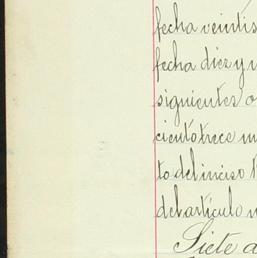 fecha veintis
fecha diez y n
siguientes o
ciento trece m
to del inciso
del artículo n
Siete a